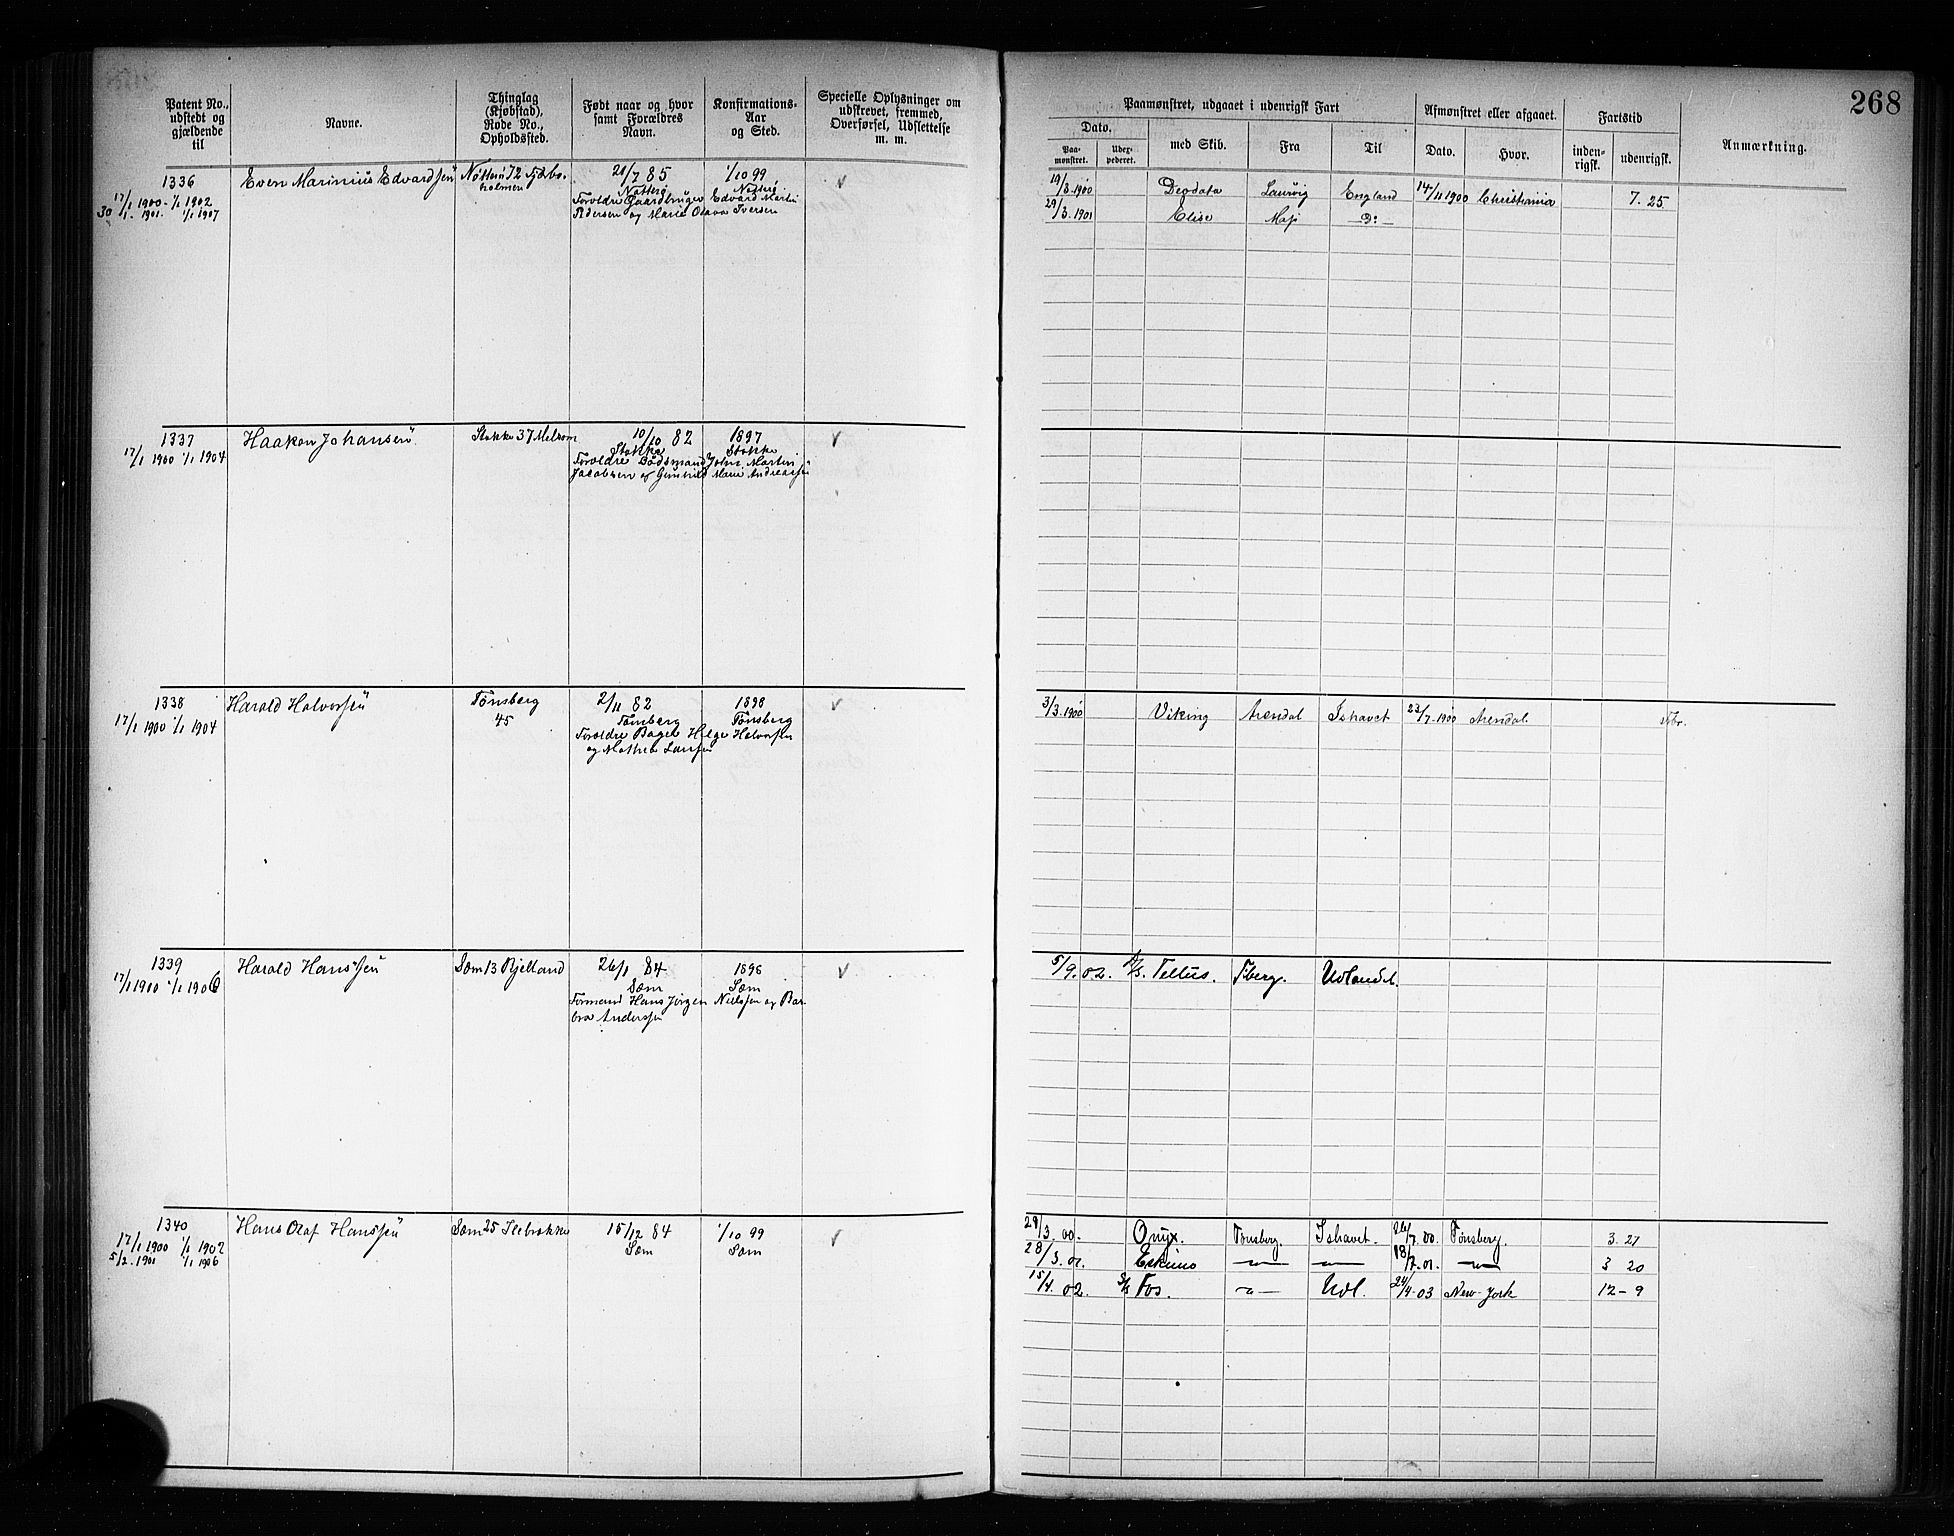 268
Patent No., udstedt og gjældende til
Navne.
Thinglag (Kjøbstad), Rode No., Opholdssted.
Født naar og hvor samt Forældres Navn.
Konfirmations-Aar og Sted.
Specielle Oplysninger om udskrevet, fremmed, Overførsel, Udslettelse m. m.
Paamønstret, udgaaet i udenrigsk Fart
Afmønstret eller afgaaet.
Fartstid
Anmærkning.
Dato.
med Skib.
Fra
Til
Dato.
Hvor.
inden-rigsk.
udenrigsk.
Paa-mønstret.
1336
17/1 1900 - 1/1 1902
30/1. 1901. 1/1 1907
Even Marinius Edvardsen
Nøtterø 72
holmen
21/7 85
Nøtterø
Forældre Gaardbruger Edvard Martin
Pedersen og Marie Olava Iversen
1/10 99
Nøtterø
19/3.1900 Deodata Laurvig England 14/11 1900 Christiania 7. 25
29/3.1901 Elise Moss Do
1337
17/1 1900 1/1 1904
Haakon Johansen
Stokke 37 Melsom
10/10 82
Stokke
Forældre Baadsmand John Martin
Jacobsen og Gunhild Marie Andreassen
1897
Stokke
1338
17/1 1900 1/1 1904
Harald Halvorsen
Tønsberg
45
2/11 82
Tønsberg
Forældre Bager Helge Halvorsen
og Mathea Larsen
1898
Tønsberg
3/3.1900 Viking Arendal Ishavet 23/7.1900 Arendal
1339
17/1 1900 1/1 1906
Harald Hanssen
Sæm 13 Bjelland
26/1 84
Sæm
Formand Hans Jørgen Nielssen og Bar-
bra Anderssen
1898
Sæm
5/9.02. Tellus. Tberg. Udlandet.
1340
17/1 1900 1/1 1902
5/2.1901 1/1 1906
Hans Olaf Hanssen
Sæm 25 Ilebrække
15/12 84
Sæm
1/10 99
Sæm
29/3.00. Onyx. Tønsberg. Ishavet. 26/7.00. Tønsberg. 3. 27
28/3.01. Eskimo — — 18/7.01. — 3 20
15/4.02 S/S Fos. — Udl. 24/4.03 New-York 12-9